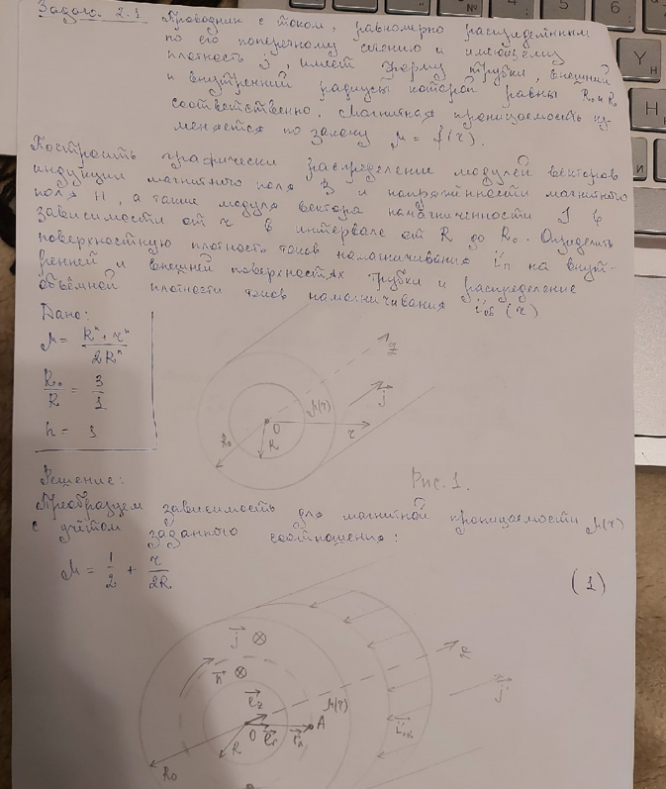 Задача 2.1 Проводник с током, равномерно распределённым
по его поперечному сечению и имеющему
плотность j, имеет форму трубки, внешний
и внутренний радиусы которой равны R₀ и R
соответственно. Магнитная проницаемость из-
меняется по закону μ = f(r).
Построить графически распределение модулей векторов
индукции магнитного поля B и напряжённости магнитного
поля H, а также модуля вектора намагниченности J в
зависимости от r в интервале от R до R₀. Определить
поверхностную плотность токов намагничивания i'п на внут-
ренней и внешней поверхностях трубки и распределение
объёмной плотности токов намагничивания i'об (r)
Дано:
μ = (Rⁿ + rⁿ) / 2Rⁿ
R₀/R = 3/1
n = 1
z
j
μ(r)
O
r
R₀
R
Рис. 1.
Решение:
Преобразуем зависимость для магнитной проницаемости μ(r)
с учётом заданного соотношения:
μ = 1/2 + r/2R (1)
j ⊗
⊗
z
μ(r)
j
O
A
R
R₀